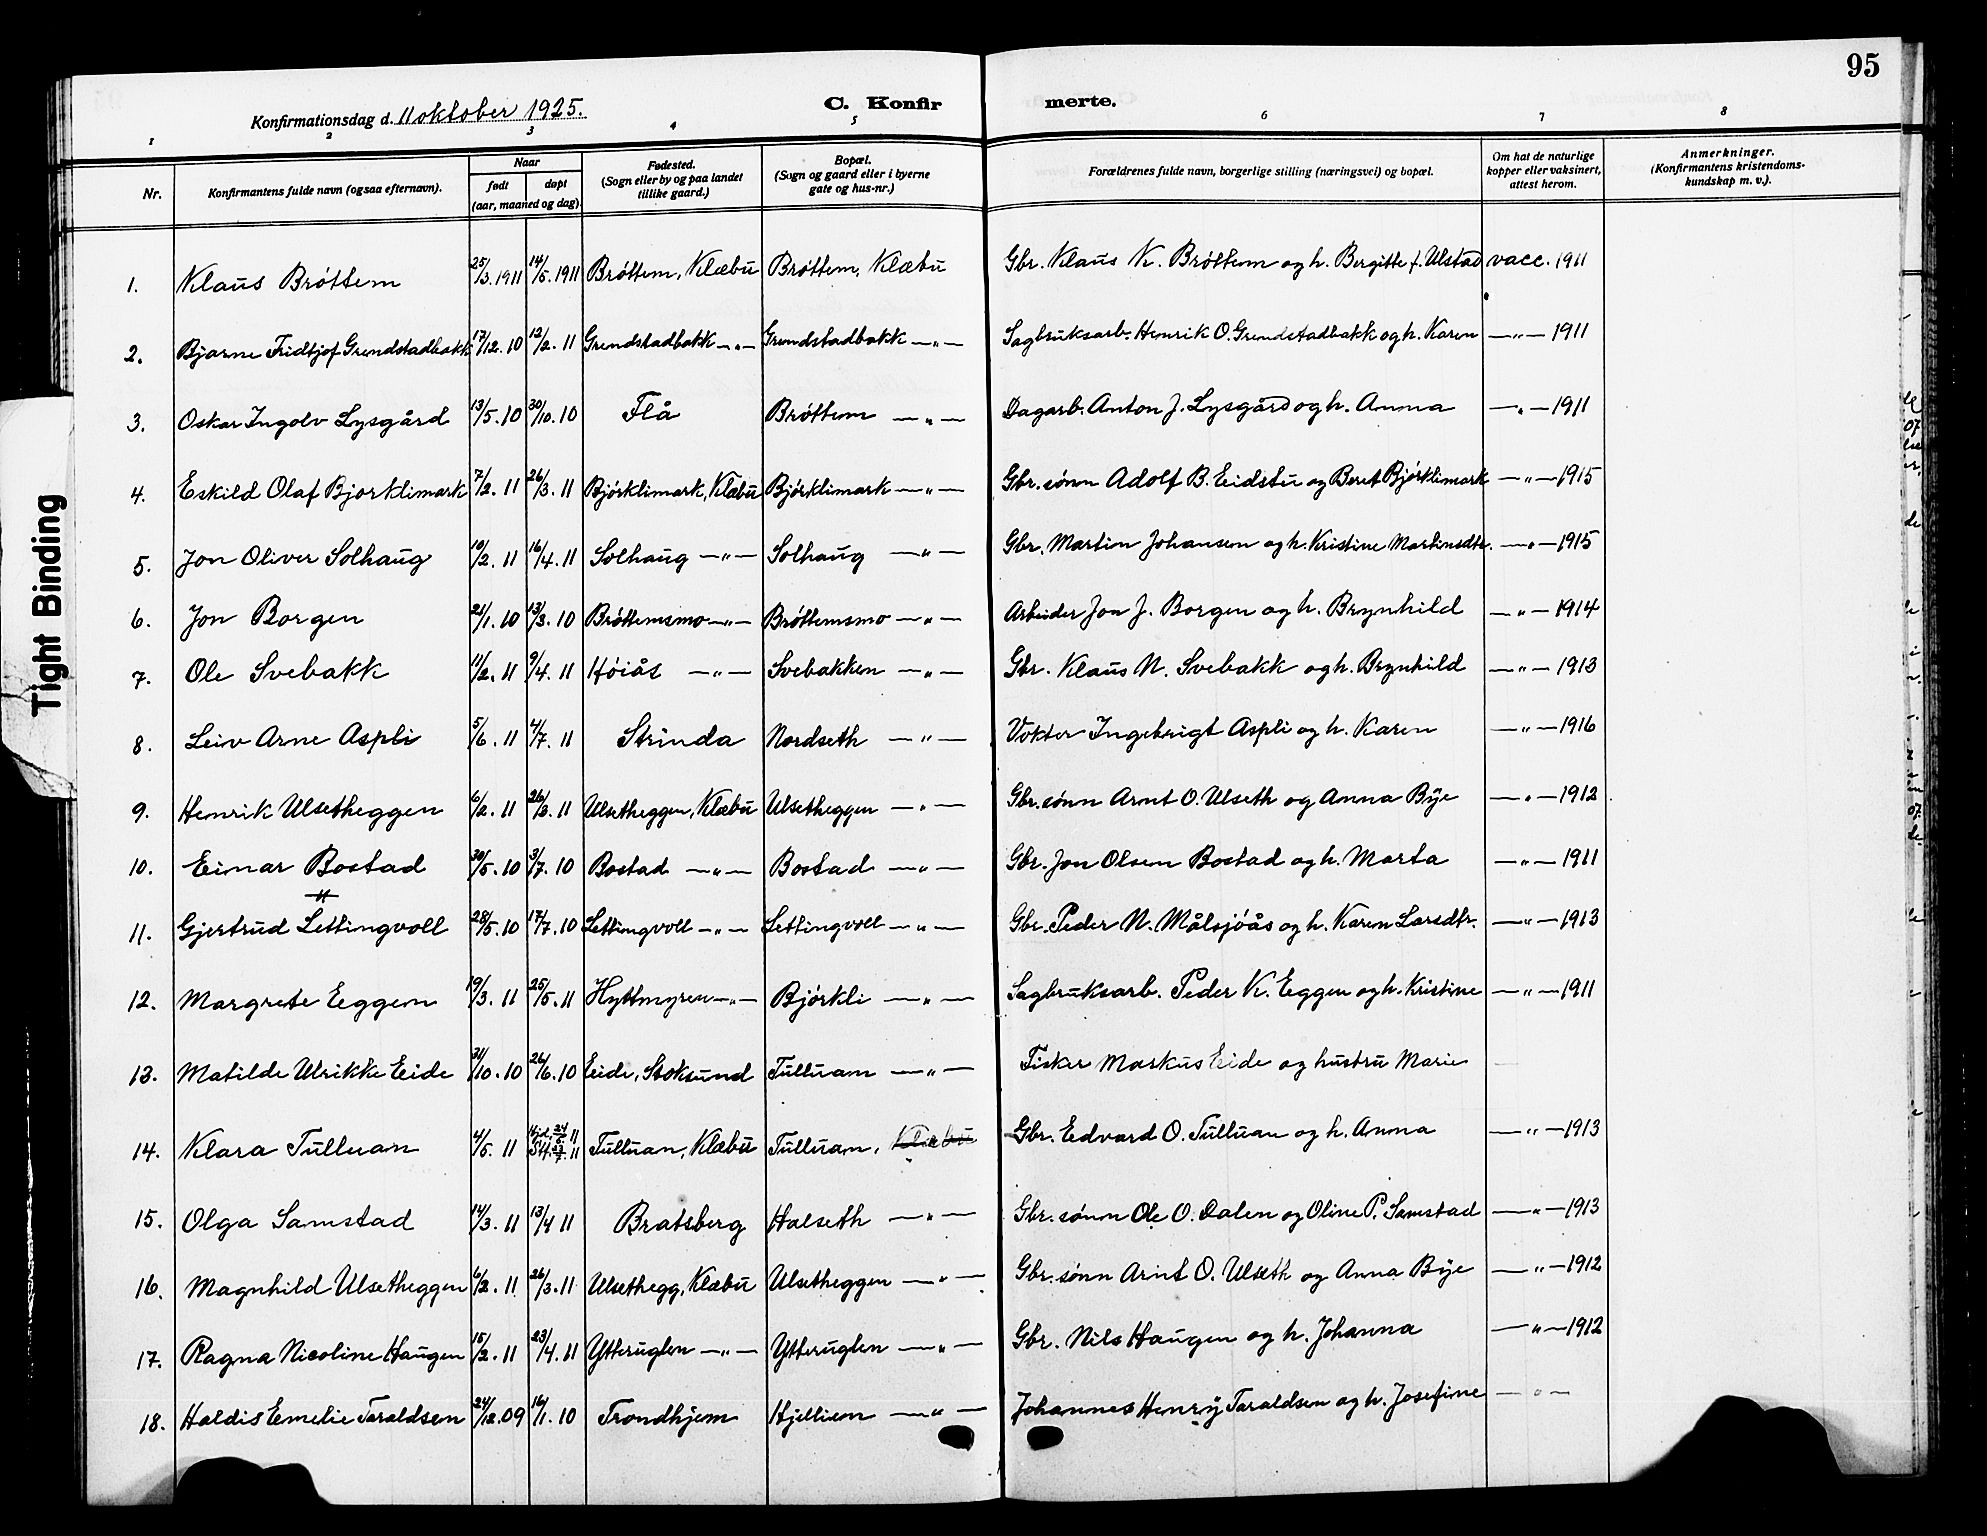 95
Konfirmationsdag d. 11 oktober 1925. C. Konfir merte.
1 2 3 4 5 6 7 8
Nr. Konfirmantens fulde navn (ogsaa efternavn). Naar født døpt (aar, maaned og dag). Fødested. (Sogn eller by og paa landet tillike gaard.) Bopæl. (Sogn og gaard eller i byerne gate og hus-nr.) Forældrenes fulde navn, borgerlige stilling (næringsvei) og bopæl. Om hat de naturlige kopper eller vaksinert, attest herom. Anmerkninger. (Konfirmantens kristendoms-kundskap m. v.).
1. Klaus Bróttem 25/3.1911 14/5.1911 Bróttem, Klæbu Bróttem, Klæbu Gbr. Klaus K. Bróttem og h. Bergitte f. Ulstad vacc. 1911
2. Bjarne Fridtjof Grendstadbakk 17/12.10 12/2.11 Grendstadbakk —„— Grendstadbakk —„— Sagbruksarb. Henrik O. Grendstadbakk og h. Karen —„— 1911
3. Oskar Ingolv Lysgård 13/5.10 30/10.10 Flå Bróttem —„— Dagarb. Anton J. Lysgård og h. Anna —„— 1911
4. Eskild Olaf Bjorklimark 7/2.11 26/3.11 Bjórklimark, Klæbu Bjórklimark —„— Gbr.sónn Adolf B. Eidstu og Beret Bjórklimark —„— 1915
5. Jon Oliver Solhaug 10/2.11 16/4.11 Solhaug —„— Solhaug —„— Gbr. Martin Johansen og h. Kristine Martinsdtr. —„— 1915
6. Jon Borgen 21/1.10 13/3.10 Bróttemsmo —„— Bróttemsmo —„— Arbeider Jon J. Borgen og h. Brynhild —„— 1914
7. Ole Svebakk 11/2.11 9/4.11 Hóiås —„— Svebakken —„— Gbr. Klaus N. Svebakk og h. Brynhild —„— 1913
8. Leiv Arne Aspli 5/6.11 4/7.11 Strinda Nordseth —„— Vokter Ingebrigt Aspli og h. Karen —„— 1916
9. Henrik Ulsetheggen 6/2.11 26/3.11 Ulsetheggen, Klæbu Ulsetheggen —„— Gbr.sónn Arnt O. Ulseth og Anna Bye —„— 1912
10. Einar Bostad 30/5.10 3/7.10 Bostad —„— Bostad —„— Gbr. Jon Olsen Bostad og h. Marta —„— 1911
11. Gjertrud Lettingvoll 28/5.10 17/7.10 Lettingvoll —„— Lettingvoll —„— Gbr. Peder N. Målsjóås og h. Karen Larsdtr. —„— 1913
12. Margrete Eggen 19/3.11 25/5.11 Hyttmyren —„— Bjórkli —„— Sagbruksarb. Peder K. Eggen og h. Kristine —„— 1911
13. Matilde Ulrikke Eide 31/10.10 26/6.10 Eide, Stoksund Tulluan —„— Fisker Markus Eide og hustru Marie —
14. Klara Tulluan 4/5.11 Hjd. 24/5. 11 Stf. 23/7. 11 Tulluan, Klæbu Tulluan, Klæbu Gbr. Edvard O. Tulluan og h. Anna —„— 1913
15. Olga Samstad 14/3.11 13/4 11 Bratsberg Halseth —„— Gbr.sónn Ole O. Dalen og Oline P. Samstad —„— 1913
16. Magnhild Ulsetheggen 6/2.11 26/3.11 Ulsethegg, Klæbu Ulsetheggen —„— Gbr.sónn Arnt O. Ulseth og Anna Bye —„— 1912
17. Ragna Nicoline Haugen 15/2.11 23/4.11 Ytteruglen —„— Ytteruglen —„— Gbr. Nils Haugen og h. Johanna —„— 1912
18. Haldis Emelie Taraldsen 24/12.09 16/1.10 Trondhjem Hjellien —„— Johannes Henry Taraldsen og h. Josefine —„—
Tight Binding